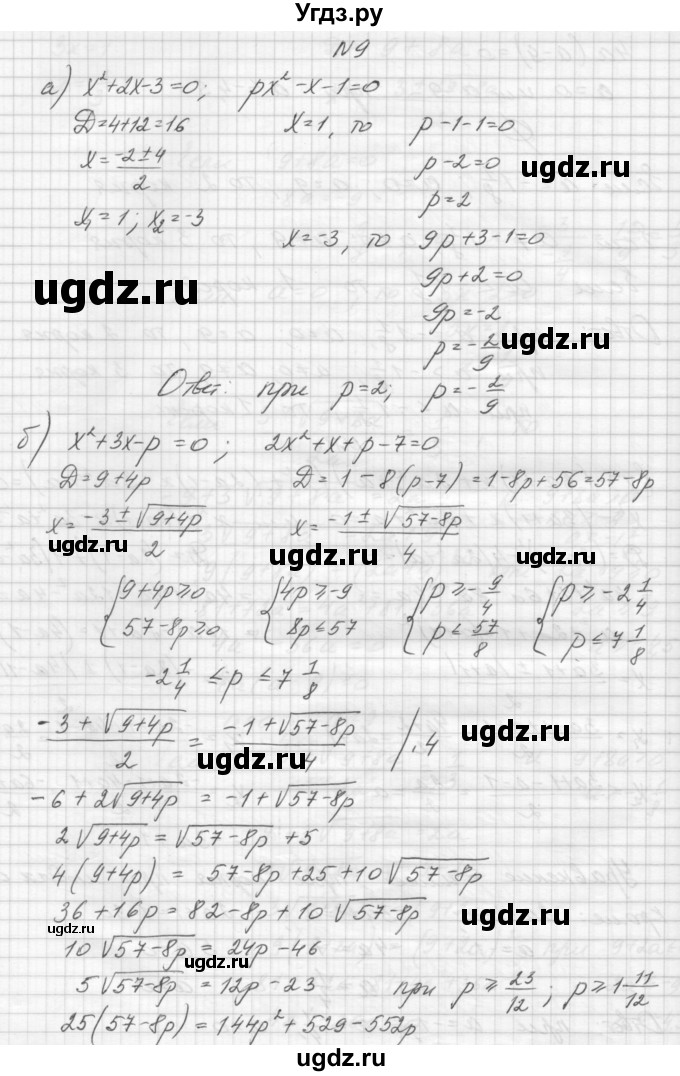 Угдз.ру
N9
а) x²+2x-3=0; px²-x-1=0
D=4+12=16 x=1, то p-1-1=0
x=(-2±4)/2 p-2=0
p=2
x₁=1; x₂=-3
x=-3, то 9p+3-1=0
9p+2=0
ugdz.ru
9p=-2
p=-2/9 ugdz.ru
Ответ: при p=2; p=-2/9
б) x²+3x-p=0; 2x²+x+p-7=0
D=9+4p D=1-8(p-7)=1-8p+56=57-8p
x=(-3±√(9+4p))/2 x=(-1±√(57-8p))/4
ugdz.ru ugdz.ru ugdz.ru
{9+4p≥0 {4p≥-9 {p≥-9/4 {p≥-2 1/4
{57-8p≥0 {8p≤57 {p≤57/8 {p≤7 1/8
-2 1/4 ≤p≤7 1/8
(-3+√(9+4p))/2=(-1+√(57-8p))/4 /·4
ugdz.ru ugdz.ru ugdz.ru
-6+2√(9+4p)=-1+√(57-8p)
2√(9+4p)=√(57-8p)+5
4(9+4p)=57-8p+25+10√(57-8p)
36+16p=82-8p+10√(57-8p)
ugdz.ru ugdz.ru
10√(57-8p)=24p-46
ugdz.ru
5√(57-8p)=12p-23 при p≥23/12; p≥1 11/12
ugdz.ru ugdz.ru
25(57-8p)=144p²+529-552p
ugdz.ru